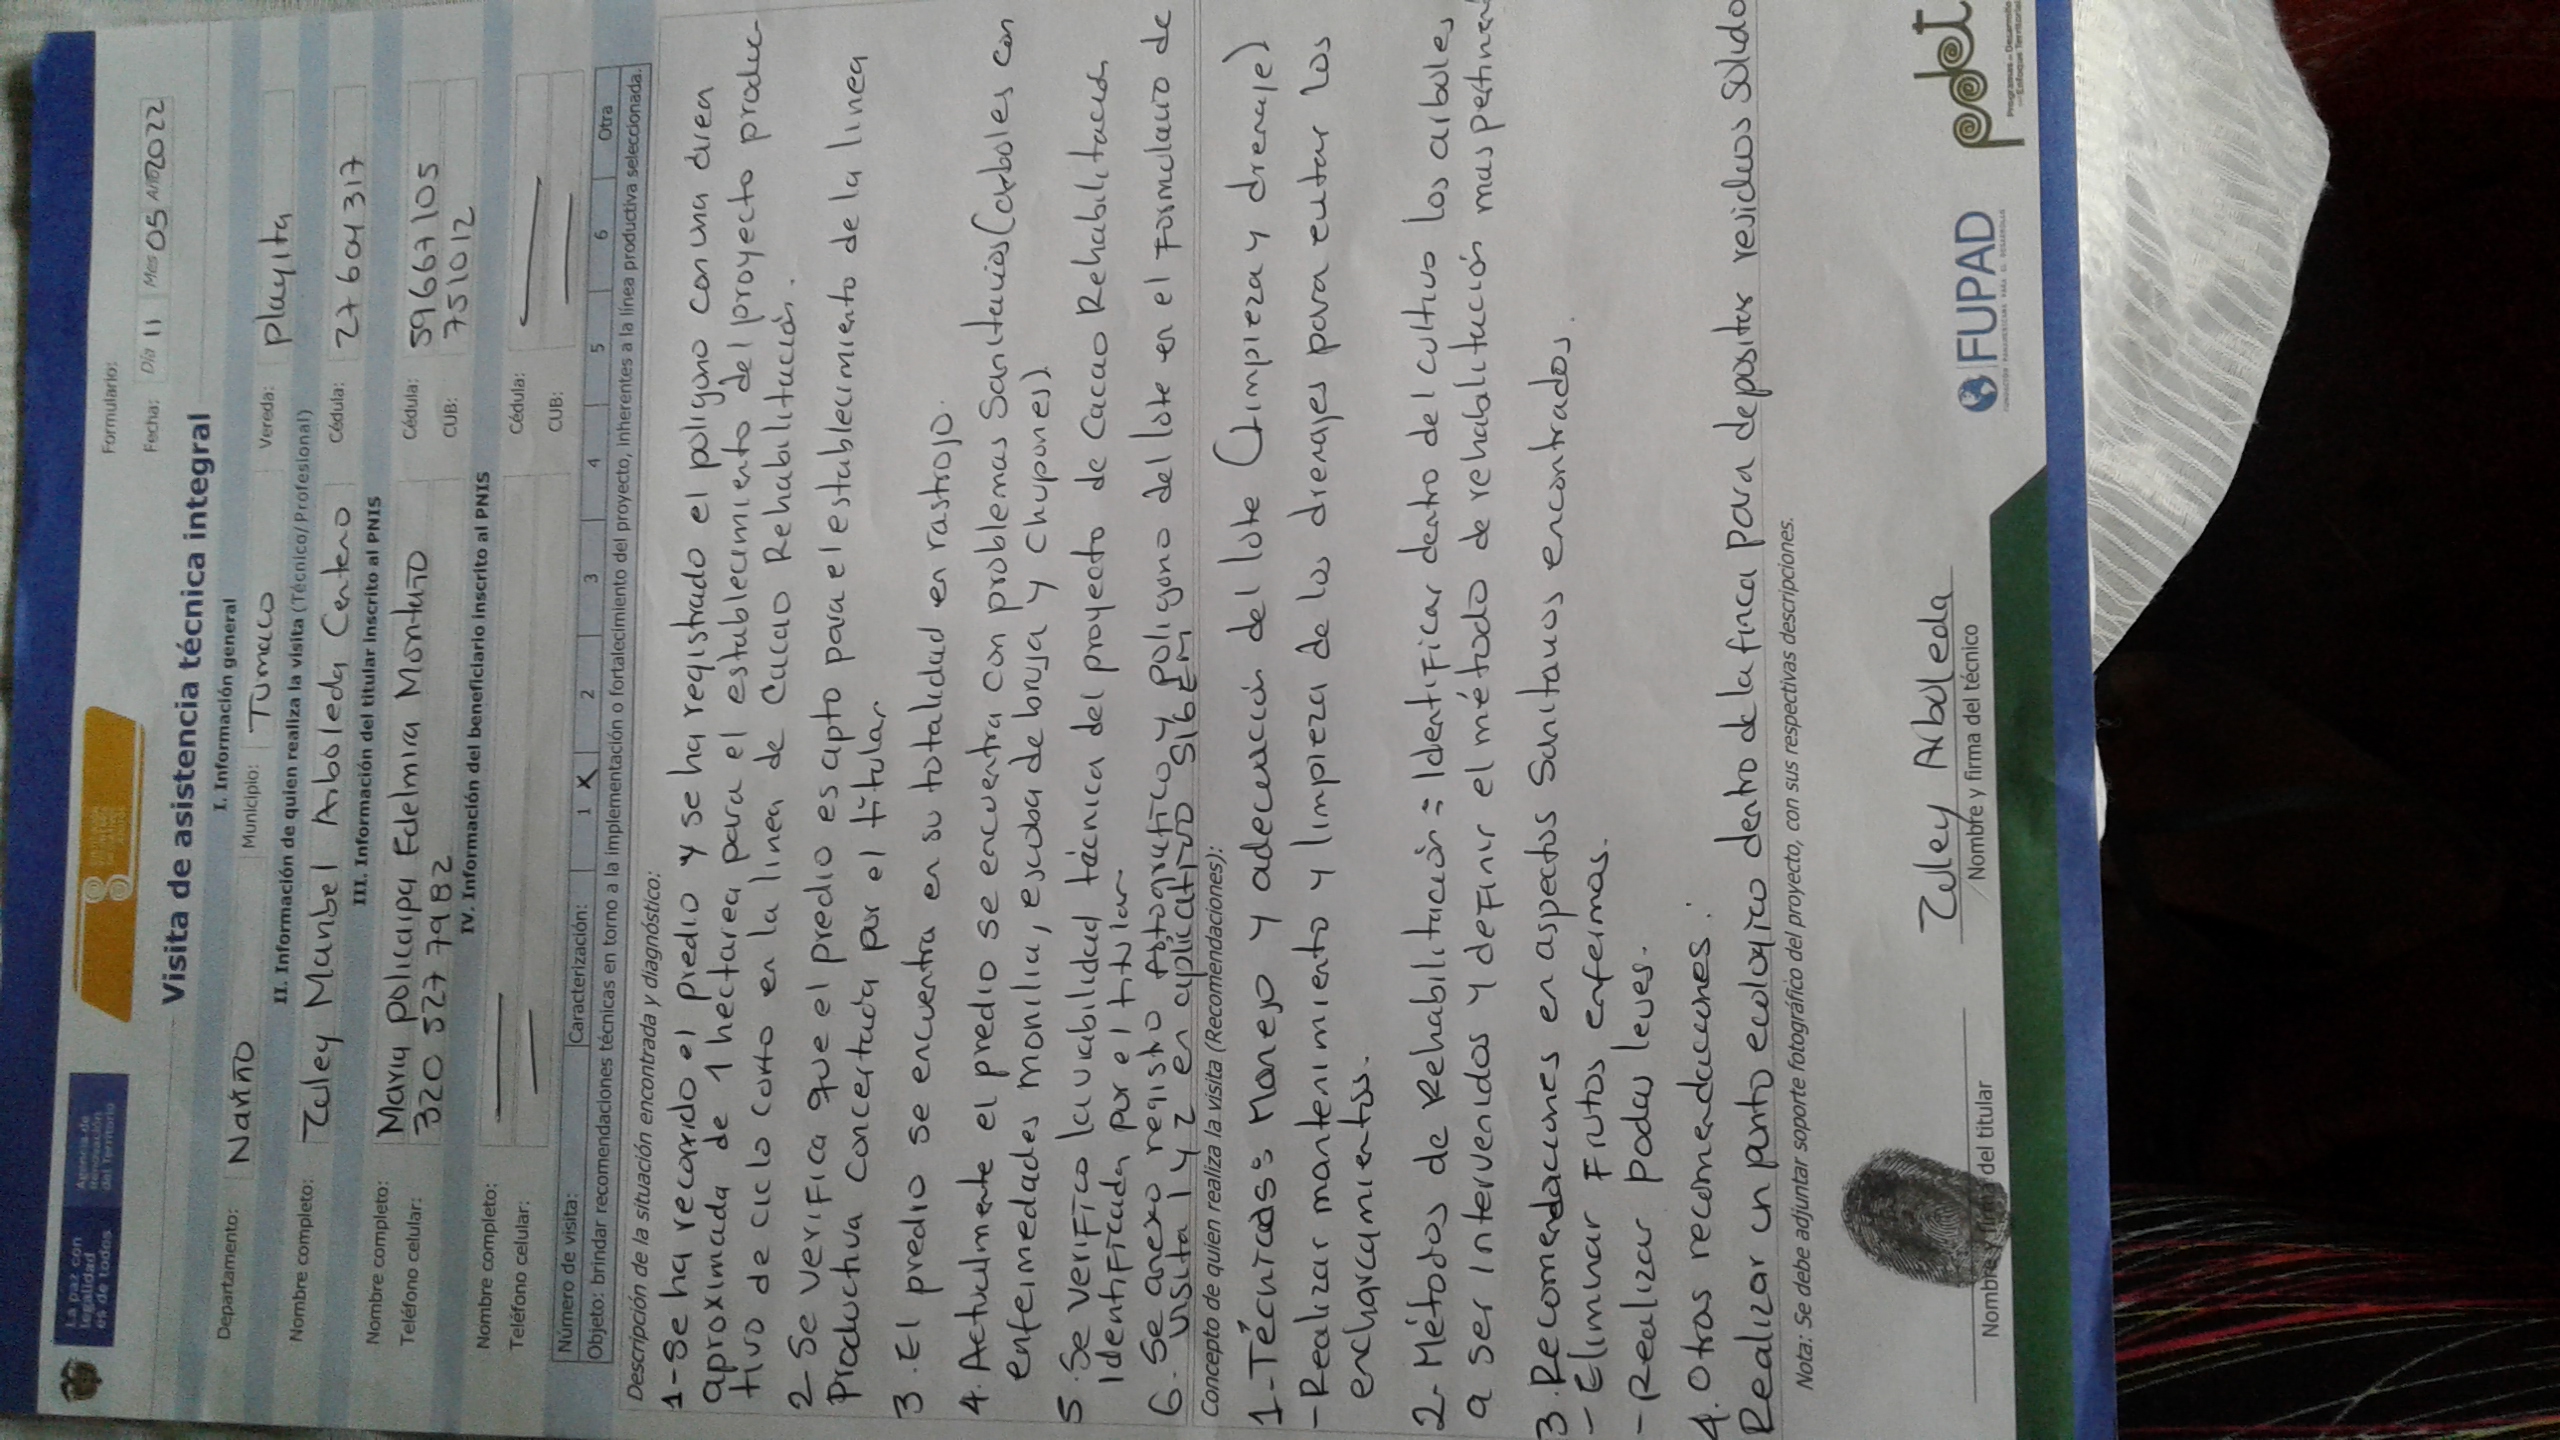 La paz con
legalidad
es de todos
Agencia de
Renovación
del Territorio
Formulario:
Fecha: Día 11 Mes 05 Año 2022
Visita de asistencia técnica integral
I. Información general
Departamento: Nariño Municipio: Tumaco Vereda: playita
II. Información de quien realiza la visita (Técnico/Profesional)
Nombre completo: Zuley Maribel Arboleda Centeno Cédula: 27604317
III. Información del titular inscrito al PNIS
Nombre completo: Maria Policarpa Edelmira Montaño Cédula: 59667105
Teléfono celular: 320 527 7982 CUB: 751012
IV. Información del beneficiario inscrito al PNIS
Nombre completo: Cédula:
Teléfono celular: CUB:
Número de visita: Caracterización: 1 X 2 3 4 5 6 Otra
Objeto: brindar recomendaciones técnicas en torno a la implementación o fortalecimiento del proyecto, inherentes a la línea productiva seleccionada.
Descripción de la situación encontrada y diagnóstico:
1-Se ha recorrido el predio y se ha registrado el poligono con una area
aproximada de 1 hectarea para el establecimiento del proyecto produc-
tivo de ciclo corto en la linea de Cacao Rehabilitación.
2 Se verifica que el predio es apto para el establecimiento de la linea
Productiva concertada por el titular
3. El predio se encuentra en su totalidad en rastrojo.
4. Actualmente el predio se encuentra con problemas Sanitarios (arboles con
enfermedades monilia, escoba de bruja y chupones)
5. Se verifico la viabilidad técnica del proyecto de Cacao Rehabilitación
Identificada por el titular
6. Se anexo registro fotografico y poligono del lote en el Formulario de
visita 1 y 2 en aplicativo SIGEM
Concepto de quien realiza la visita (Recomendaciones):
1-Técnicas: Manejo y adecuación del lote (limpieza y drenaje)
-Realizar mantenimiento y limpieza de los drenajes para evitar los
encharcamientos.
2-Métodos de Rehabilitación: Identificar dentro del cultivo los arboles
a ser intervenidos y definir el método de rehabilitación mas pertinent
3.Recomendaciones en aspectos Sanitarios encontrados.
- Eliminar Frutos enfermos.
-Realizar podas leves.
4. Otras recomendaciones:
Realizar un punto ecologico dentro de la finca para depositar residuos solido
Nota: Se debe adjuntar soporte fotográfico del proyecto, con sus respectivas descripciones.
Zuley Arboleda
Nombre y firma del titular Nombre y firma del técnico
FUPAD
pdet
Programas de Desarrollo
con Enfoque Territorial